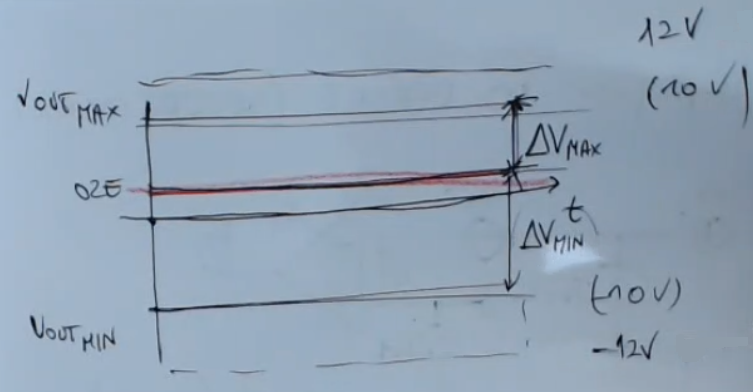 12V
VOUT MAX
(10V)
ΔV MAX
02E
t
ΔV MIN
(10V)
VOUT MIN
-12V